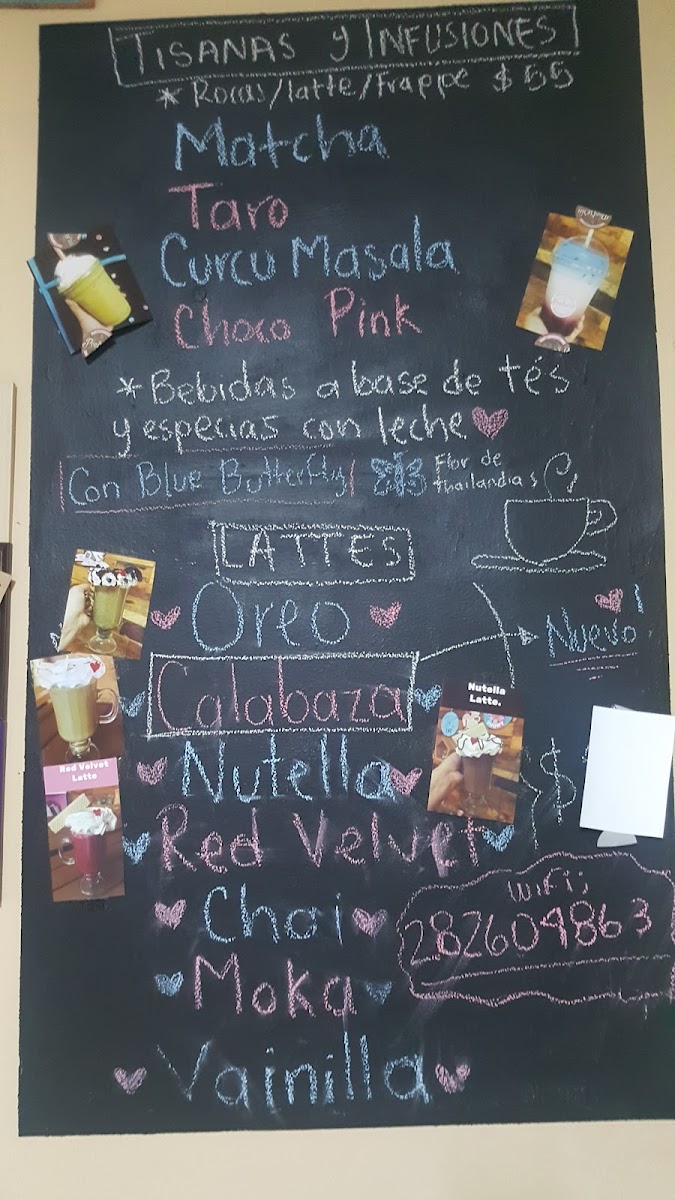 TISANAS y INFUSIONES
* Rocas/latte/Frappe $55
Matcha
Taro
Curcu Masala
Choco Pink
*Bebidas a base de tés
y especias con leche
Con Blue Butterfly
Flor de
thailandia
LATTES
Oreo
Nuevo!
Calabaza
Nutella
Latte.
Nutella
$
Red Velvet
Latte
Red Velvet
Chai
WiFi;
282604863
Moka
Vainilla